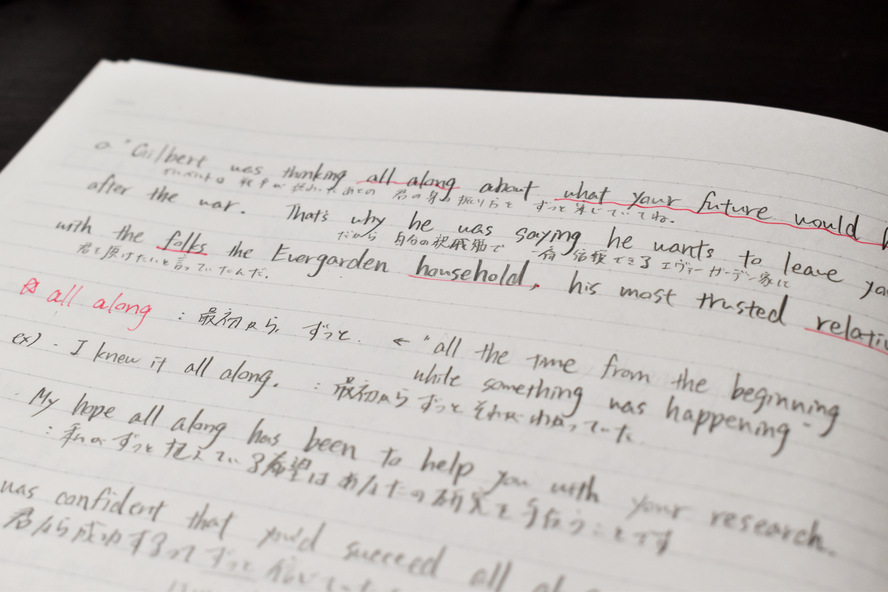 "Gilbert was thinking all along about what your future would
ギルベルトは 戦争が終わったあとの 君の身の振り方を ずっと案じていてね。
after the war. That's why he was saying he wants to leave
だから 自分の親戚筋で 一番信頼できるエヴァーガーデン家に
with the folks the Evergarden household, his most trusted
君を預けたいと言っていたんだ。
all along : 最初から, ずっと. ← "all the time from the beginning
while something was happening"
ex) · I knew it all along. : 最初からずっとそれがわかっていた
· My hope all along has been to help you with your research.
: 私がずっと抱えている希望はあなたの研究を手伝うことです
was confident that you'd succeed all
君なら成功するってずっと信じていた